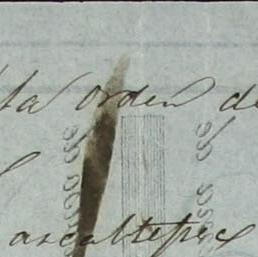 la orden de
ascaltepec